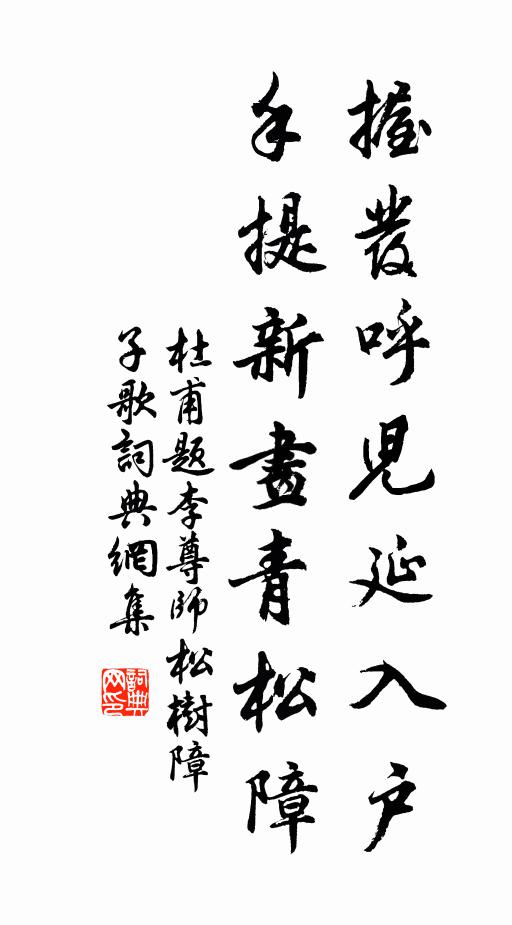 握發呼児延入户
手提新畫青松障
杜甫題李尊師松樹障
子歌詞典網集
詞典網印